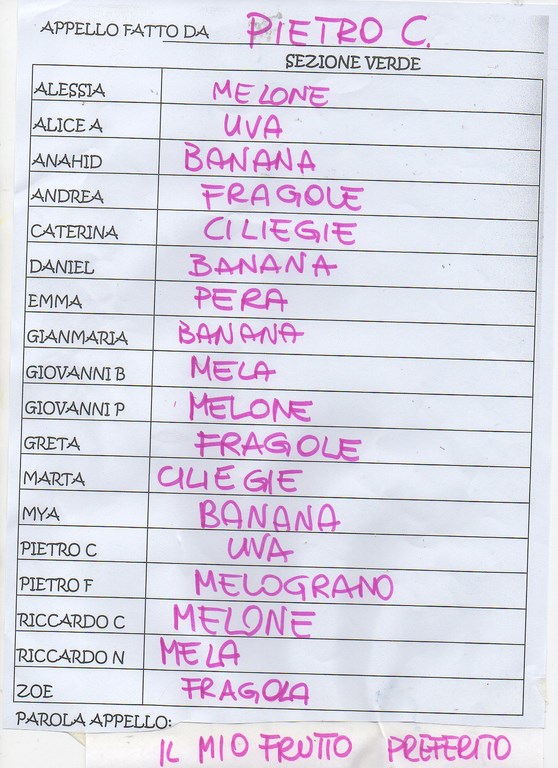 APPELLO FATTO DA PIETRO C.
SEZIONE VERDE
ALESSIA MELONE
ALICE A UVA
ANAHID BANANA
ANDREA FRAGOLE
CATERINA CILIEGIE
DANIEL BANANA
EMMA PERA
GIANMARIA BANANA
GIOVANNI B MELA
GIOVANNI P MELONE
GRETA FRAGOLE
MARTA CILIEGIE
MYA BANANA
PIETRO C UVA
PIETRO F MELOGRANO
RICCARDO C MELONE
RICCARDO N MELA
ZOE FRAGOLA
PAROLA APPELLO:
IL MIO FRUTTO PREFERITO